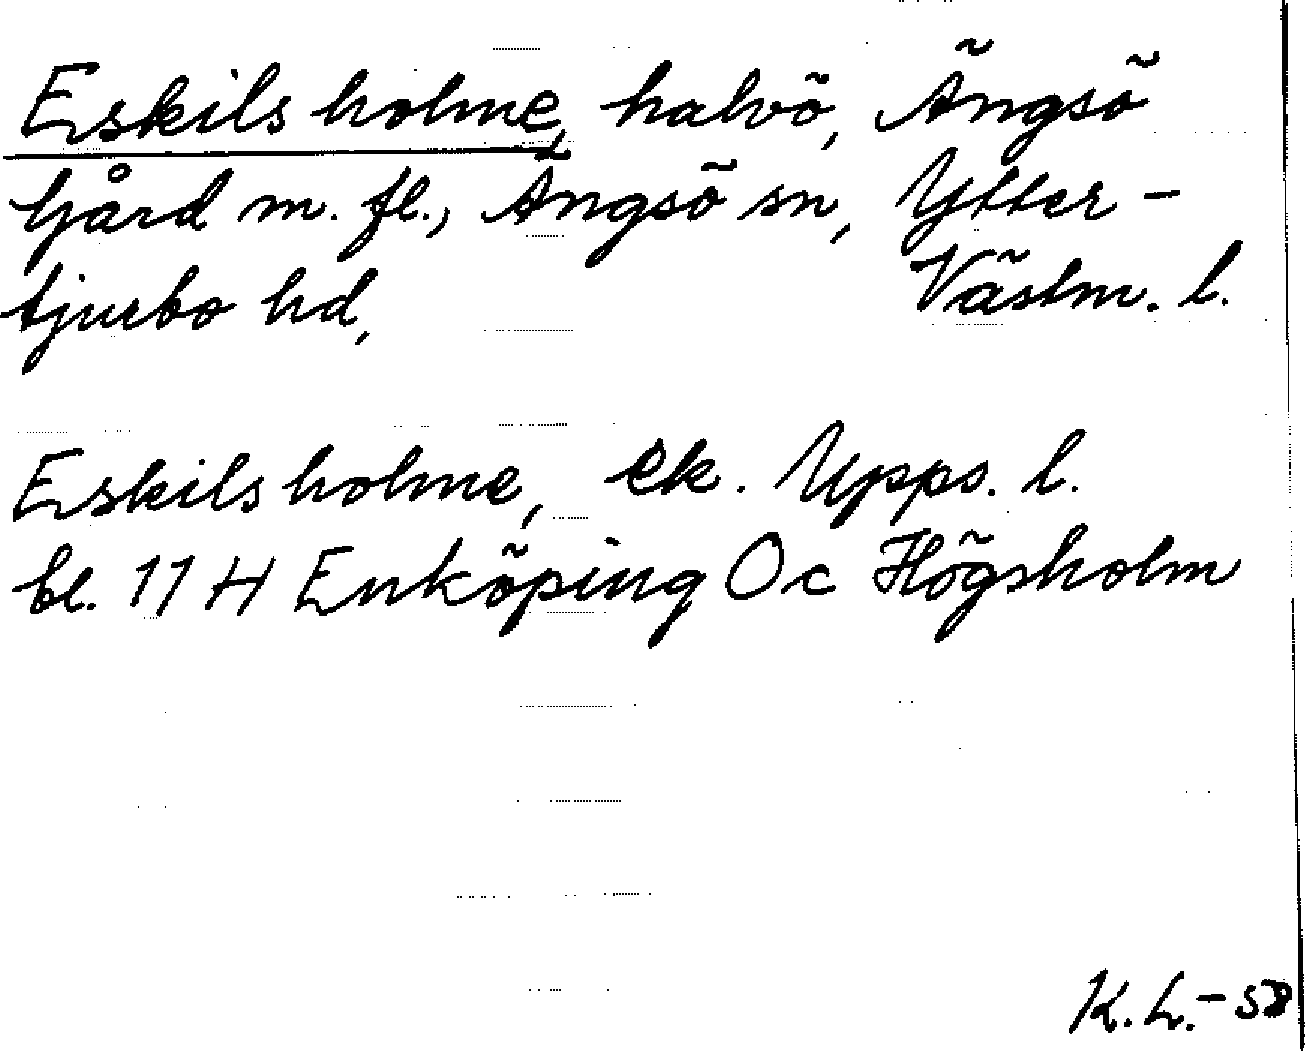 Eskilsholme, halvö, Ängsö
Gård m. fl., Ängsö sn, Ytter-
tjurbo hd, Västm. l.
Eskilsholme, ek. Upps. l.
bl. 11 H Enköping Oc Högsholm
K. L. - 58